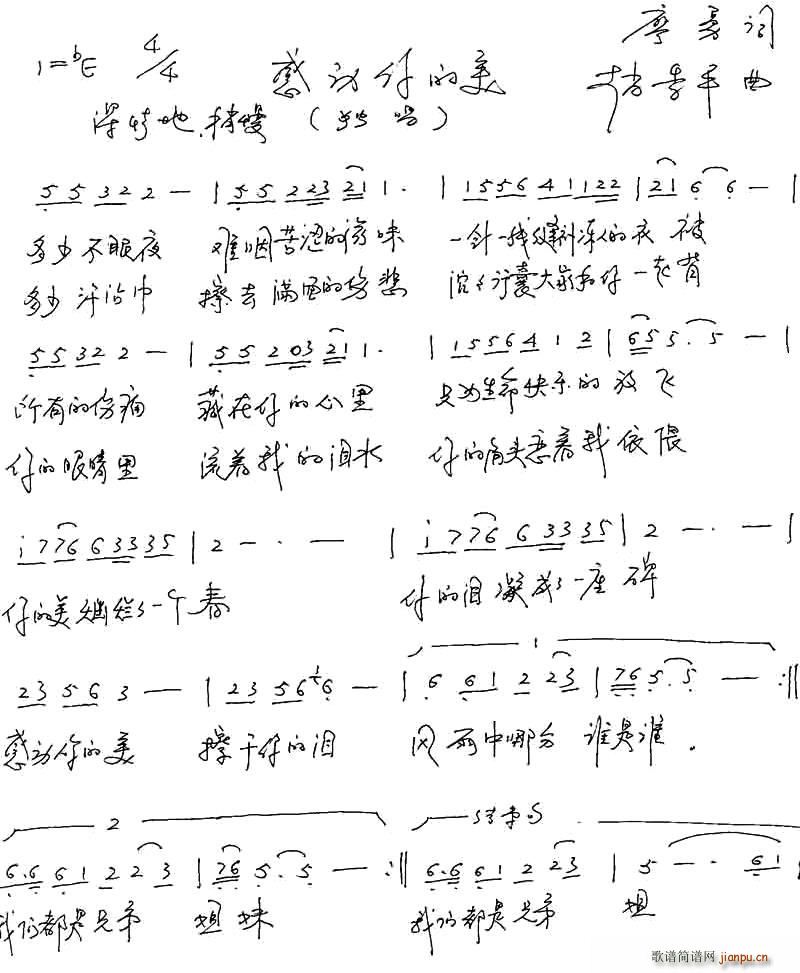 1=bE 4/4 感动你的美 廖勇词
深情地.稍慢 (独唱) 曲
5 5 3 2 2 — | 5 5 2 2 3 2 1 1 . | 1 5 5 6 4 1 1 2 2 | 2 1 6 6 — |
多少不眠夜 难咽苦涩的滋味 一针一线缝制冻人的衣被
多少汗沾巾 擦去满面的伤悲 沉沉行囊大家和你一起背
5 5 3 2 2 — | 5 5 2 0 3 2 1 1 . | 1 5 5 6 4 1 2 | 6 5 5 . 5 — |
所有的伤痛 藏在你的心里 只为生命快乐的放飞
你的眼睛里 流着我的泪水 你的肩头恋着我依偎
i 7 7 6 6 3 3 3 5 | 2 — · — | i 7 7 6 6 3 3 3 5 | 2 — · — |
你的美灿烂了一个春 你的泪凝成了一座碑
1
2 3 5 6 3 — | 2 3 5 6 1 6 — | 6 6 1 2 2 3 | 7 6 5 . 5 — :||
感动你的美 擦干你的泪 风雨中哪分 谁是谁.
2 结束句
6.6 6 1 2 2 3 | 7 6 5 . 5 — :|| 6.6 6 1 2 2 3 | 5 — · 6 1 |
我们都是兄弟 姐妹 我们都是兄弟 姐
歌谱简谱网 jianpu.cn